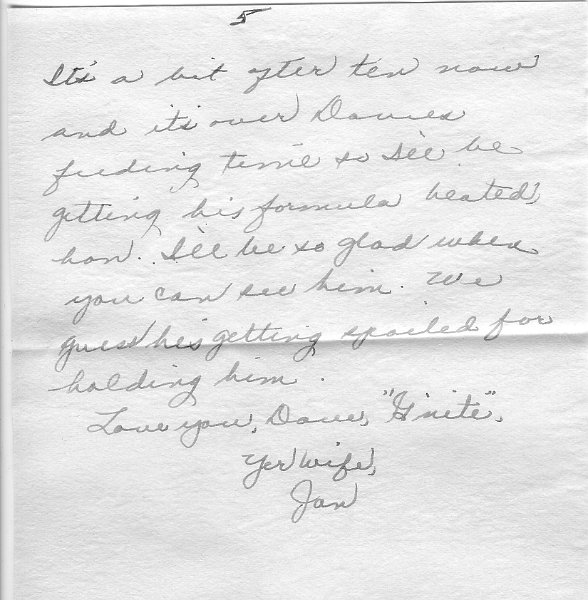 5
It's a bit after ten now
and it's over Davies
feeding time so I'll be
getting his formula heated,
hon. I'll be so glad when
you can see him. We
guess he's getting spoiled for
holding him.
Love you, Dave, "G'nite".
Yer wife,
Jan